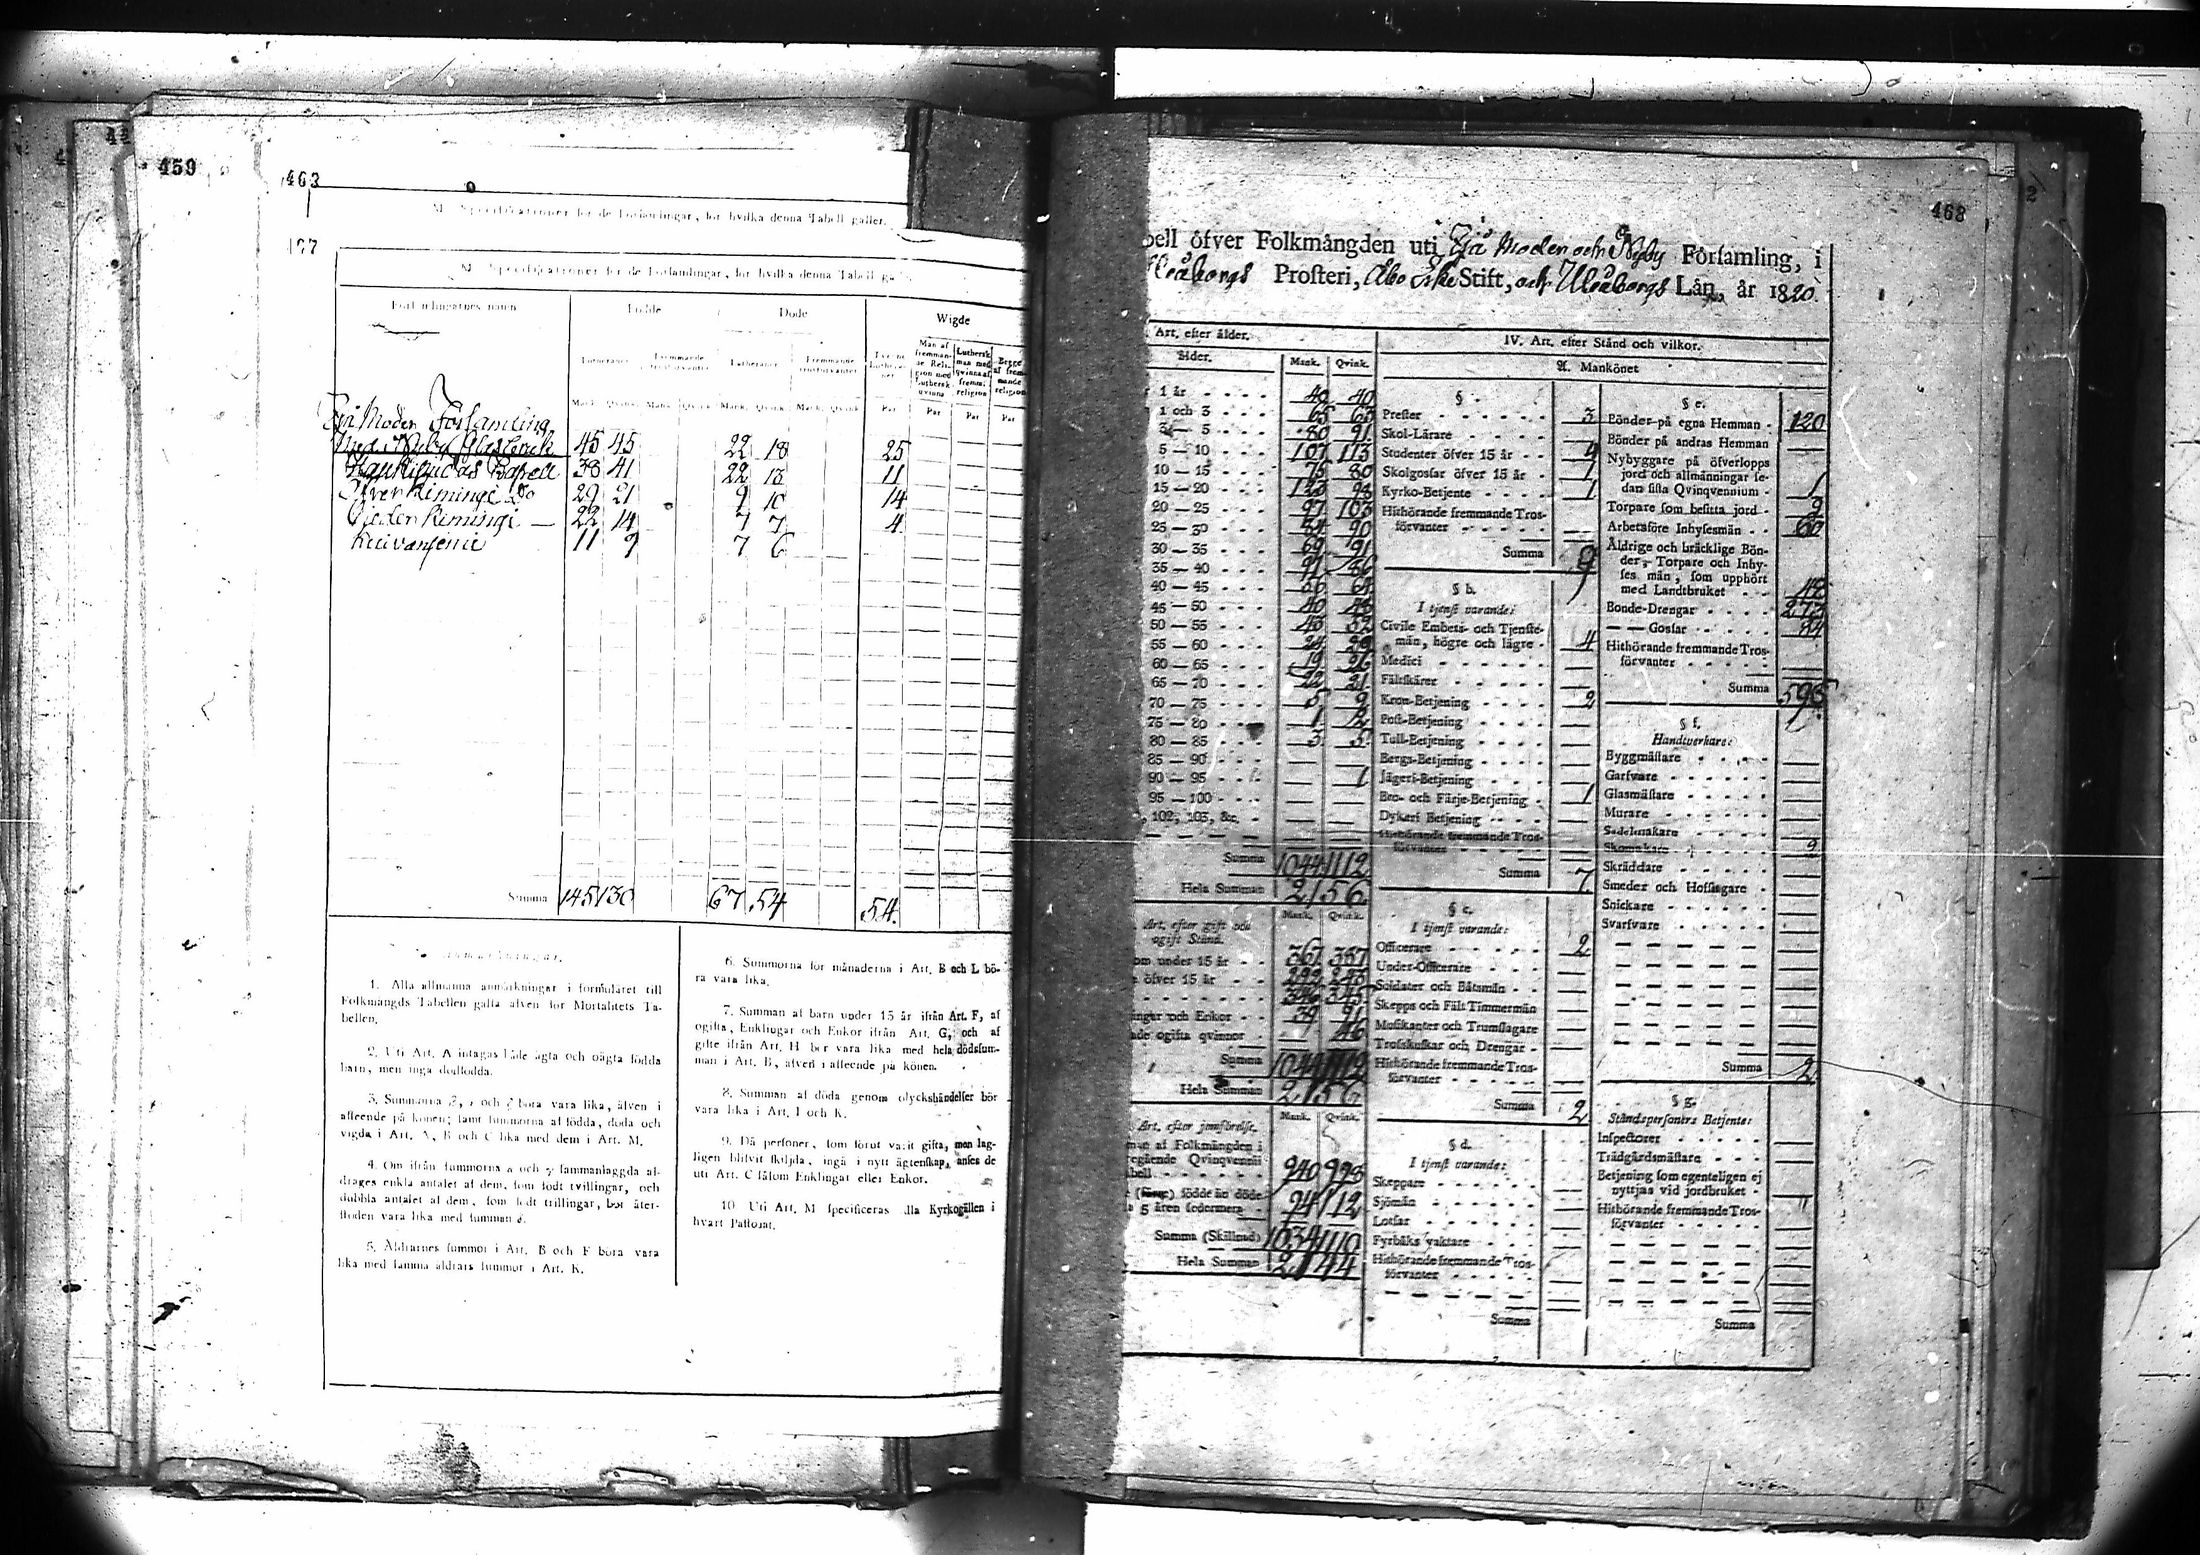 459
463
M. Specificationer för de Församlingar, för hvilka denna Tabell gäller.
467
M. Specificationer för de Församlingar, för hvilka denna Tabell
Församlingarnes namn
Födde
Döde
Wigde
Lutheraner
Fremmande trosförvanter
Lutheraner
Fremmande trosförvanter
Man af fremmande Religion med Luthersk qvinna
Luthersk man med qvinna af fremm. religion
Begge af fremmande religion
Mank. Qvink. Mank. Qvink. Mank. Qvink. Mank. Qvink. Par Par Par Par
Moder Församling
45 45 22 18 25
38 41 22 13 11
Öfver Kiminge Do 29 21 9 10 14
Neder Kimingi — 22 14 7 7 4
Kuivaniemi 11 9 7 6
Summa 145 130 67 54 54.
Anmärkningar.
1. Alla allmänna anmärkningar i formuläret till
Folkmängds Tabellen gälla äfven för Mortalitets Ta-
bellen.
2. Uti Art. A intagas både ägta och oägta födda
barn, men inga dödfödda.
3. Summorna och böra vara lika, äfven i
afseende på könen; samt summorna af födda, döda och
vigda i Art. A, B och C lika med dem i Art. M.
4. Om ifrån summorna och sammanlaggda af-
drages enkla antalet af dem, som födt tvillingar, och
dubbla antalet af dem, som födt trillingar, bör åter-
stoden vara lika med summan
5. Åldrarnes summor i Art. B och F böra vara
lika med samma åldrars summor i Art. K.
6. Summorna för månaderna i Art. B och L bö-
ra vara lika.
7. Summan af barn under 15 år ifrån Art. F, af
ogifta, Enklingar och Enkor ifrån Art. G, och af
gifte ifrån Art. H bör vara lika med hela dödssum-
man i Art. B, äfven i afseende på könen.
8. Summan af döda genom olyckshändelser bör
vara lika i Art. I och K.
9. Då personer, som förut varit gifta, men lag-
ligen blifvit skiljda, ingå i nytt ägtenskap, anses de
uti Art. C såsom Enklingar eller Enkor.
10. Uti Art. M specificeras alla Kyrkogällen i
hvart Pastorat.
468
bell öfver Folkmängden uti Ijå Moder och Församling, i
Uleåborgs Prosteri, Åbo Stift, och Uleåborgs Län, år 1820.
Art. efter ålder.
Ålder. Mank. Qvink.
1 år 40 40
1 och 3 65 63
3 — 5 80 91
5 — 10 107 113
10 — 15 75 80
15 — 20 123 98
20 — 25 97 103
25 — 30 90
30 — 35 69 91
35 — 40
40 — 45 64
45 — 50 40
50 — 55 43 32
55 — 60
60 — 65 19
65 — 70 22 21
70 — 75 9
75 — 80 1
80 — 85 3 5
85 — 90
90 — 95 1
95 — 100
102, 103, &c.
Summa 1044 1112
Hela Summan 2156
Mank. Qvink.
Art. efter gift och
ogift Stånd.
om under 15 år 367 387
öfver 15 år
ngar och Enkor 39 91
ade ogifta qvinnor 46
Summa 1044 1112
Hela Summan 2156
Mank. Qvink.
Art. efter jemförelse.
af Folkmängden i
egående Qvinqvennii
bell 940 998
födde än döde
5 åren sedermera 94 112
Summa (Skillnad) 1034 1110
Hela Summan 2144
IV. Art. efter Stånd och vilkor.
A. Mankönet
§
Prester 3
Skol-Lärare
Studenter öfver 15 år 4
Skolgossar öfver 15 år 1
Kyrko-Betjente 1
Hithörande fremmande Tros-
förvanter
Summa 9
§ b.
I tjenst varande:
Civile Embets- och Tjenste-
män, högre och lägre 4
Medici
Fältskärer
Kron-Betjening 2
Post-Betjening
Tull-Betjening
Bergs-Betjening
Jägeri-Betjening
Bro- och Färje-Betjening 1
Dykeri Betjening
Hithörande fremmande Tros-
förvanter
Summa 7
§ c.
I tjenst varande:
Officerare 2
Under-Officerare
Soldater och Båtsmän
Skepps och Fält Timmermän
Musikanter och Trumslagare
Trosskuskar och Drengar
Hithörande fremmande Tros-
förvanter
Summa 2
§ d.
I tjenst varande:
Skeppare
Sjömän
Lotsar
Fyrbåks vaktare
Hithörande fremmande Tros-
förvanter
Summa
§ e.
Bönder på egna Hemman 120
Bönder på andras Hemman
Nybyggare på öfverlopps
jord och allmänningar se-
dan sista Qvinqvennium 1
Torpare som besitta jord 9
Arbetsföre Inhysesmän 60
Åldrige och bräcklige Bön-
der, Torpare och Inhy-
ses män, som upphört
med Landtbruket
Bonde-Drengar 273
— — Gossar
Hithörande fremmande Tros-
förvanter
Summa 595
§ f.
Handtverkare:
Byggmästare
Garfvare
Glasmästare
Murare
Sadelmakare
Skomakare 2
Skräddare
Smeder och Hofslagare
Snickare
Svarfvare
Summa 2
§ g.
Ståndspersoners Betjente:
Inspectorer
Trädgårdsmästare
Betjening som egenteligen ej
nyttjas vid jordbruket
Hithörande fremmande Tros-
förvanter
Summa